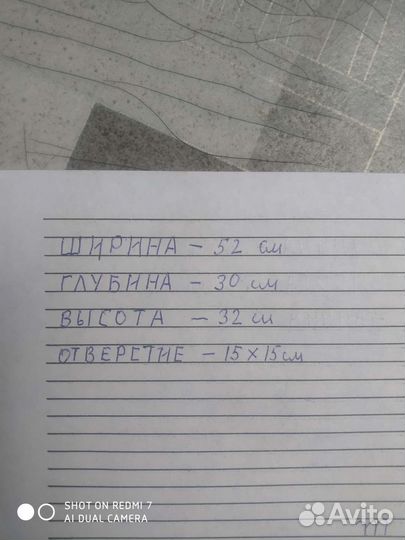 ШИРИНА – 52 см
ГЛУБИНА – 30 см
ВЫСОТА – 32 см
ОТВЕРСТИЕ – 15 х 15 см
SHOT ON REDMI 7
AI DUAL CAMERA
Avito